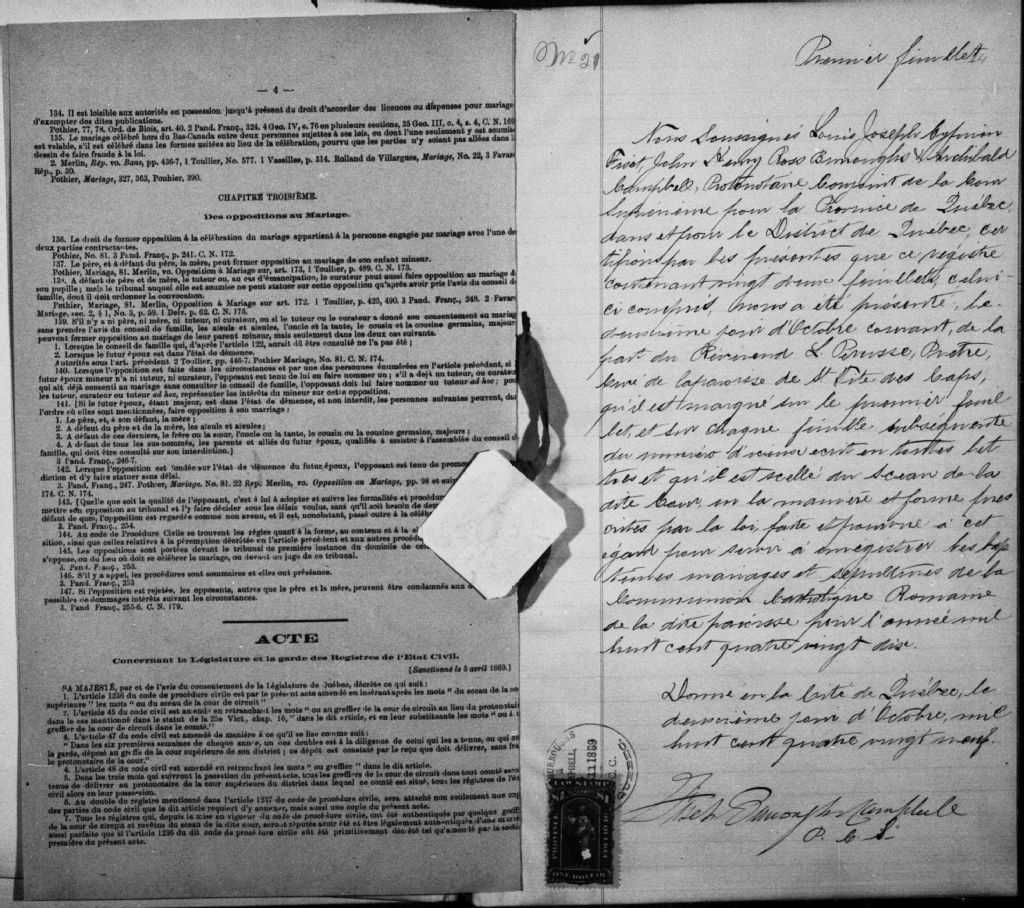 — 4 —
134. Il est loisible aux autorités en possession jusqu'à présent du droit d'accorder des licences ou dispenses pour mariage
d'exempter des dites publications.
Pothier, 77, 78. Ord. de Blois, art. 40. 2 Pand. Franç., 324. 4 Geo. IV, c. 76 en plusieurs sections, 35 Geo. III, c. 4, s. 4, C. N. 169
135. Le mariage célébré hors du Bas-Canada entre deux personnes sujettes à ses lois, ou dont l'une seulement y est soumise
est valable, s'il est célébré dans les formes usitées au lieu de la célébration, pourvu que les parties n'y soient pas allées dans
dessin de faire fraude à la loi.
2. Merlin, Rép. vo. Bans, pp. 436-7, 1 Toullier, No. 577. 1 Vaseilles, p. 314. Rolland de Villargues, Mariage, No. 22, 3 Favard
Rép., p. 30.
Pothier, Mariage, 327, 363, Pouhier, 390.
CHAPITRE TROISIÈME.
Des oppositions au Mariage.
136. Le droit de former opposition à la célébration du mariage appartient à la personne engagée par mariage avec l'une des
deux parties contractantes.
Pothier, No. 81. 3 Pand. Franç., p. 241. C. N. 172.
137. Le père, et à défaut du père, la mère, peut former opposition au mariage de son enfant mineur.
Pothier, Mariage, 81. Merlin, vo. Opposition à Mariage sur art. 173, 1 Toullier, p. 489. C. N. 173.
138. A défaut de père et de mère, le tuteur ou, au cas d'émancipation, le curateur peut aussi faire opposition au mariage de
son pupille; mais le tribunal auquel elle est soumise ne peut statuer sur cette opposition qu'après avoir pris l'avis du conseil de
famille, dont il doit ordonner la convocation.
Pothier, Mariage, 81. Merlin, Opposition à Mariage sur art. 172. 1 Toullier, p. 425, 490. 3 Pand. Franç., 248. 2 Favard
Mariage, sec. 2, § 1, No. 3, p. 59. 1 Delv. p. 62. C. N. 175.
139. S'il n'y a ni père, ni mère, ni tuteur, ni curateur, ou si le tuteur ou le curateur a donné son consentement au mariage
sans prendre l'avis du conseil de famille, les aieuls et aieules, l'oncle et la tante, le cousin et la cousine germains, majeurs
peuvent former opposition au mariage de leur parent mineur, mais seulement dans les deux cas suivants.
1. Lorsque le conseil de famille qui, d'après l'article 122, aurait dû être consulté ne l'a pas été;
2. Lorsque le futur époux est dans l'état de démence.
Autorités sous l'art. précédent. 2 Toullier, pp. 446-7. Pothier Mariage, No. 81. C. N. 174.
140. Lorsque l'opposition est faite dans les circonstances et par une des personnes énumérées en l'article précédent, si
futur époux mineur n'a ni tuteur, ni curateur, l'opposant est tenu de lui en faire nommer un; s'il a déjà un tuteur, ou curateur
qui ait déjà consenti au mariage sans consulter le conseil de famille, l'opposant doit lui faire nommer un tuteur ad hoc; pour
les tuteur, curateur ou tuteur ad hoc, représenter les intérêts du mineur sur cette opposition.
141. [Si le futur époux, étant majeur, est dans l'état de démence, et non interdit, les personnes suivantes peuvent, dans
l'ordre où elles sont mentionnées, faire opposition à son marriage:
1. Le père, et, à son défaut, la mère;
2. A défaut du père et de la mère, les aieuls et aieules;
3. A défaut de ces derniers, le frère ou la sœur, l'oncle ou la tante, le cousin ou la cousine germains, majeurs;
4. A défaut de tous les sus-nommés, les parents et alliés du futur époux, qualifiés à assister à l'assemblée du conseil de
famille, qui doit être consulté sur son interdiction.]
3 Pand. Franç., 246-7.
142. Lorsque l'opposition est fondée sur l'état de démence du futur époux, l'opposant est tenu de promo
diction et d'y faire statuer sans délai.
3. Pand. Franç., 247. Pothier, Mariage, No. 81. 22 Rép. Merlin, vo. Opposition au Mariage, pp. 98 et sui
174. C. N. 174.
143. [Quelle que soit la qualité de l'opposant, c'est à lui à adopter et suivre les formalités et procédur
mettre son opposition au tribunal et l'y faire décider sous les délais voulus, sans qu'il soit besoin de de
défaut de quoi, l'opposition est regardée comme non avenue, et il est, nonobstant, passé outre à la céléb
3. Pand. Franç., 254.
144. Au code de Procédure Civile se trouvent les règles quant à la forme, au contenu et à la
sition, ainsi que celles relatives à la péremption décrétée en l'article précédent et aux autres procédu
145. Les oppositions sont portées devant le tribunal de première instance du domicile de ce
s'oppose, ou du lieu où doit se célébrer le mariage, ou devant un juge de ce tribunal.
3. Pand. Franç., 253.
146. S'il y a appel, les procédures sont sommaires et elles ont préséance.
3. Pand. Franç., 253
147. Si l'opposition est rejetée, les opposants, autres que le père et la mère, peuvent être condamnés aux d
passibles de dommages intérêts suivant les circonstances.
3. Pand. Franç., 255-6. C. N. 179.
ACTE
Concernant la Législature et la garde des Registres de l'Etat Civil.
[Sanctionné le 5 avril 1869.]
SA MAJESTÉ, par et de l'avis du consentement de la Législature de Québec, décrète ce qui suit:
1. L'article 1236 du code de procédure civile est par le présent acte amendé en insérant après les mots "du sceau de la co
supérieure" les mots "ou du sceau de la cour de circuit"
2. L'article 45 du code civil est amendé en retranchant les mots "ou au greffier de la cour de circuit au lieu du protonotai
dans le cas mentionné dans le statut de la 25e Vict., chap. 16," dans le dit article, et en leur substituant les mots "ou au
greffier de la cour de circuit dans le comté."
3. L'article 47 du code civil est amendé de manière à ce qu'il se lise comme suit:
"Dans les six premières semaines de chaque année, un des doubles est à la diligence de celui qui les a tenus, ou qui en
la garde, déposé au greffe de la cour supérieure de son district; ce dépôt est constaté par le reçu que doit délivrer, sans fra
le protonotaire de la cour."
4. L'article 48 du code civil est amendé en retranchant les mots "ou greffier" dans le dit article.
5. Dans les trois mois qui suivront la passation du présent acte, tous les greffiers de la cour de circuit dans tout comté sero
tenus de délivrer au protonotaire de la cour supérieure du district dans lequel ce comté est situé, tous les registres de l'ét
civil alors en leur possession.
6. Au double du registre mentionné dans l'article 1237 du code de procédure civile, sera attaché non seulement une cop
des parties du code civil que le dit article requiert d'y annexer, mais aussi une copie du présent acte.
7. Tous les registres qui, depuis la mise en vigueur du code de procédure civile, ont été authentiqués par quelque greff
de la cour de circuit et revêtus du sceau de la dite cour, seront réputés avoir été et être légalement authentiqués d'une mani
aussi parfaite que si l'article 1236 du dit code de procédure civile eût été primitivement décrété tel qu'amendé par la sectio
première du présent acte.
No 21
Premier feuillet
Nous Soussignés Louis Joseph Cyprien
Fiset, John Henry Ross Burroughs & Archibald
Campbell, Protonotaire Conjoint de la Cour
Supérieure pour la Province de Québec,
dans et pour le District de Québec, cer
tifions par les présentes que ce régistre
contenant vingt deux feuillets, celui
ci compris, nous a été présenté, le
deuxième jour d'Octobre courant, de la
part du Révérend L. Pérusse, Prêtre,
curé de la paroisse de St Tite des Caps,
qu'il est marqué sur le premier feuil
let, et sur chaque feuillet subséquente
du numéro d'iceux écrit en toutes let
tres et qu'il est scellé du Sceau de la
dite Cour, en la manière et forme pres
crites par la loi, faite et pourvue à cet
égard pour servir à enregistrer les bap
têmes mariages et sépultures de la
Communion Catholique Romaine
de la dite paroisse pour l'année mil
huit cent quatre vingt dix.
Donné en la Cité de Québec, le
deuxième jour d'Octobre, mil
huit cent quatre vingt neuf.
Fiset Burroughs Campbell
P. C. S.
BURROUGHS
11 1889
QUEBEC
C. C.
$1 LAW STAMP $1
PROVINCE
OF QUEBEC
ONE DOLLAR